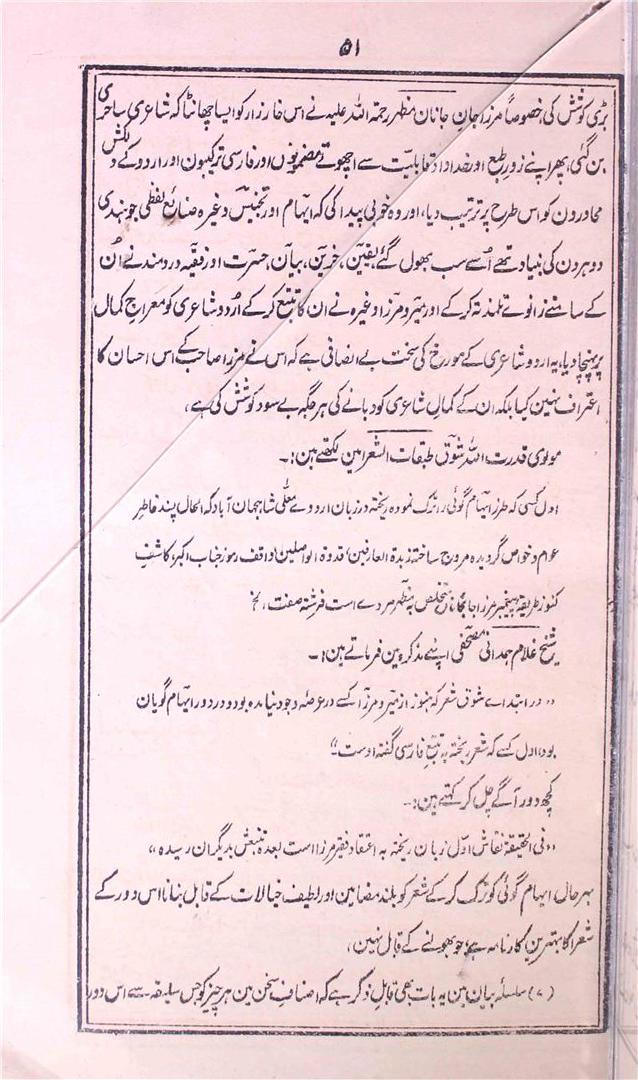 ۵۱
بڑی کوشش کی خصوصاً مرزا جانِ جانان مظہر رحمۃ اللہ علیہ نے اس خارزار کو ایسا چھانٹا کہ شاعری ساحری
بن گئی، پھر اپنے زورِ طبع اور خداداد قابلیت سے اچھوتے مضمونوں اور فارسی ترکیبون اور اردو کے دلکش
محاورون کو اس طرح پر ترتیب دیا، اور وہ خوبی پیدا کی کہ ایہام اور تجنیس وغیرہ صنائع لفظی جو ہندی
دوہرون کی بنیاد تھے اُسے سب بھول گئے، یقین، حزین، بیان، حسرت اور فقیہ دردمند نے اُن
کے سامنے زانوے تلمذ تہ کرکے اور میر و مرزا وغیرہ نے ان کا تتبع کرکے اُردو شاعری کو معراجِ کمال
پر پہنچا دیا، یہ اردو شاعری کے مورخ کی سخت بے انصافی ہے کہ اس نے مرزا صاحب کے اس احسان کا
اعتراف نہین کیا بلکہ ان کے کمالِ شاعری کو دبانے کی ہر جگہ بے سود کوشش کی ہے،
مولوی قدرت اللہ شوق طبقات الشعرا مین لکھتے ہین:۔
اول کسی کہ طرز ایہام گوئی را ترک نمودہ ریختہ در زبان اردوے معلّی شاہجہان آباد کہ الحال پسند خاطر
عوام و خواص گردیدہ مروج ساختہ زبدۃ العارفین، قدوۃ الواصلین، واقف رموز جناب اکبر، کاشفِ
کنوز طریقۂ پیغمبر مرزا جانجانان متخلص بہ مظہر مردے است فرشتہ صفت، الخ
شیخ غلام ہمدانی مصحفی اپنے تذکرہ مین فرماتے ہین:۔
"در ابتداے شوق شعر کہ ہنوز از میر و مرزا کسے در عرصہ وجود نیامدہ بود و در دور ایہام گویان
بود، اول کسے کہ شعر ریختہ بہ تتبع فارسی گفتہ اوست۔"
کچھ دور آگے چل کر کہتے ہین:۔
"فی الحقیقۃ نقاش اوّل زبان ریختہ بہ اعتقاد فقیر مرزا است بعدہ تتبعش بدیگران رسیدہ"
بہر حال ایہام گوئی کو ترک کرکے شعر کو بلند مضامین اور لطیف خیالات کے قابل بنانا اس دور کے
شعرا کا بہترین کارنامہ ہے، جو بھولنے کے قابل نہین،
(۷) سلسلۂ بیان مین یہ بات بھی قابلِ ذکر ہے کہ اصنافِ سخن مین ہر چیز کو جس سلیقہ سے اس دور